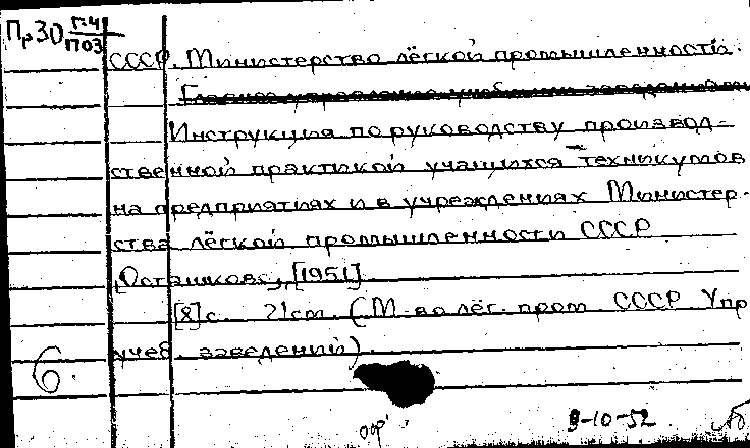 Пр30 П-41
П03
СССР. Министерство лёгкой промышленности.
Главное управление учебными заведениями
Инструкция по руководству производ-
ственной практикой учащихся техникумов
на предприятиях и в учреждениях Министер-
ства лёгкой промышленности СССР
[Осташков], [1951]
[8] с. 21 см. (М-во лёг. пром СССР Упр
учеб. заведений)
6.
9-10-52.